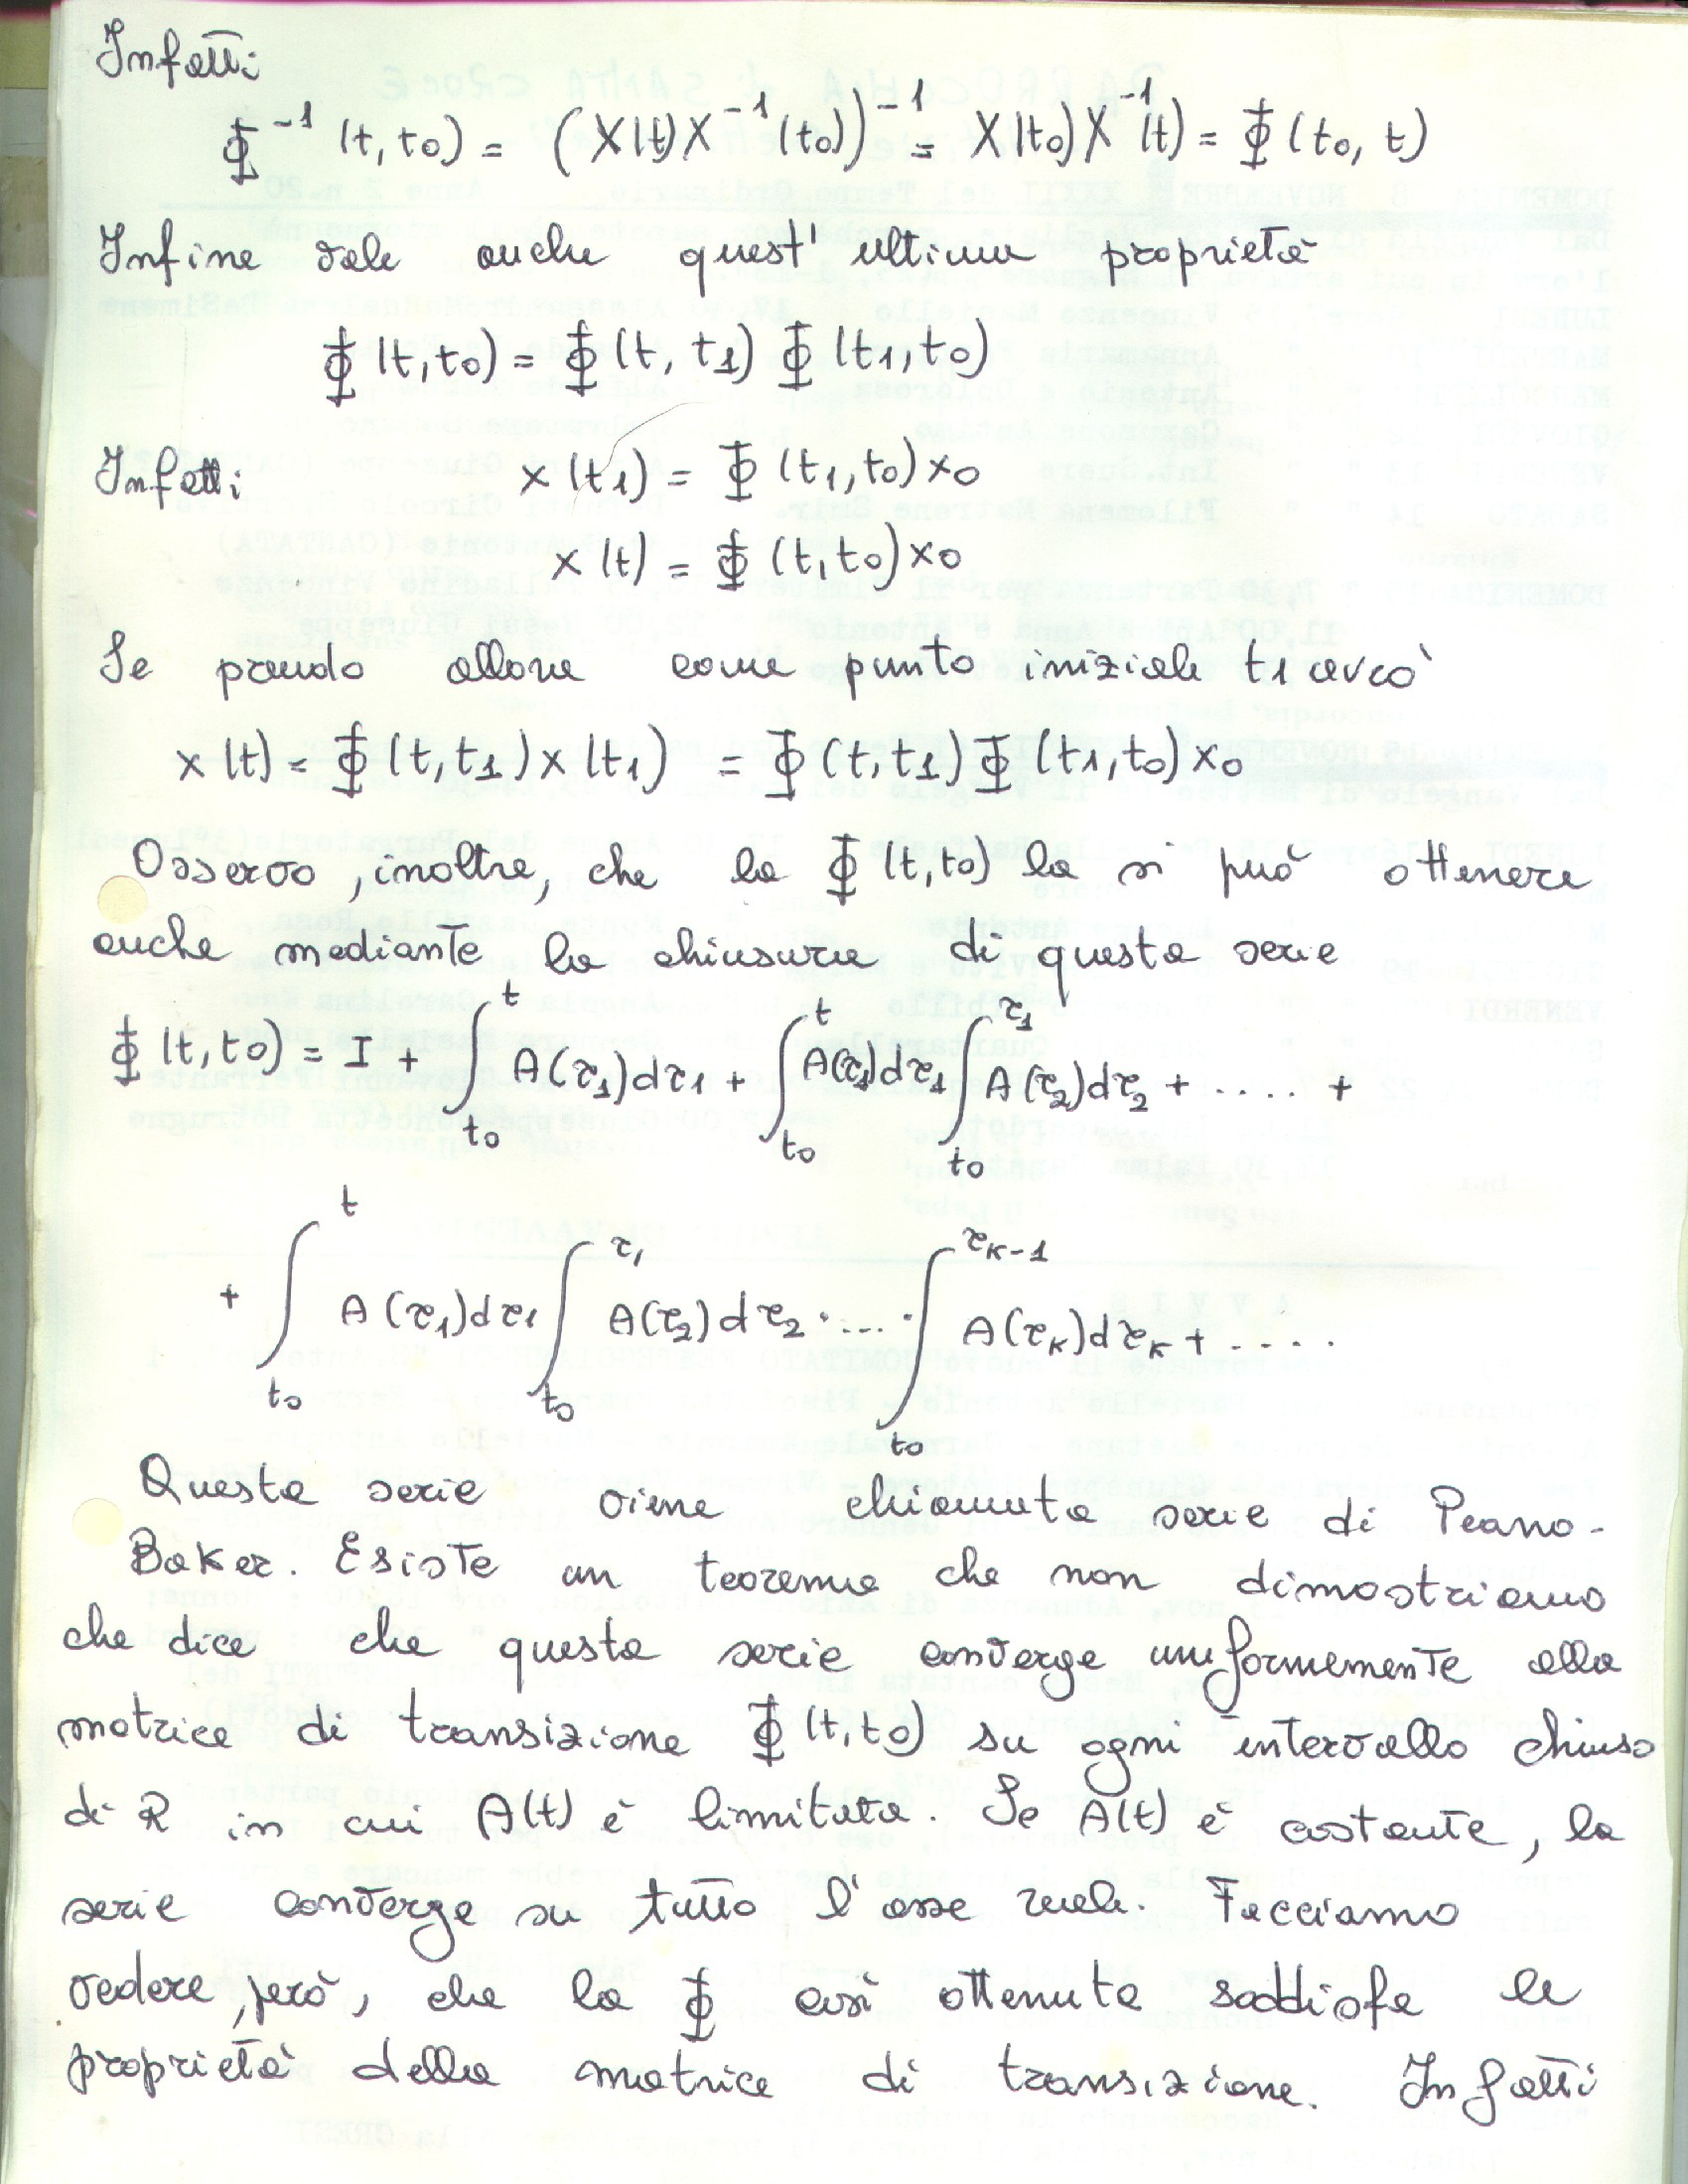 Infatti
Φ⁻¹(t,t0) = (X(t)X⁻¹(t0))⁻¹ = X(t0)X⁻¹(t) = Φ(t0, t)
Infine vale anche quest'ultima proprietà
Φ(t,t0) = Φ(t,t1) Φ(t1,t0)
Infatti x(t1) = Φ(t1,t0)x0
x(t) = Φ(t,t0)x0
Se prendo allora come punto iniziale t1 avrò
x(t) = Φ(t,t1)x(t1) = Φ(t,t1)Φ(t1,t0)x0
Osservo, inoltre, che la Φ(t,t0) la si può ottenere
anche mediante la chiusura di questa serie
Φ(t,t0) = I + ∫_{t0}^{t} A(τ1)dτ1 + ∫_{t0}^{t} A(τ1)dτ1 ∫_{t0}^{τ1} A(τ2)dτ2 + ..... +
+ ∫_{t0}^{t} A(τ1)dτ1 ∫_{t0}^{τ1} A(τ2)dτ2 ..... ∫_{t0}^{τK-1} A(τK)dτK + .....
Questa serie viene chiamata serie di Peano-
Baker. Esiste un teorema che non dimostriamo
che dice che questa serie converge uniformemente alla
matrice di transizione Φ(t,t0) su ogni intervallo chiuso
di R in cui A(t) è limitata. Se A(t) è costante, la
serie converge su tutto l'asse reale. Facciamo
vedere, però, che la Φ così ottenuta soddisfa le
proprietà della matrice di transizione. Infatti